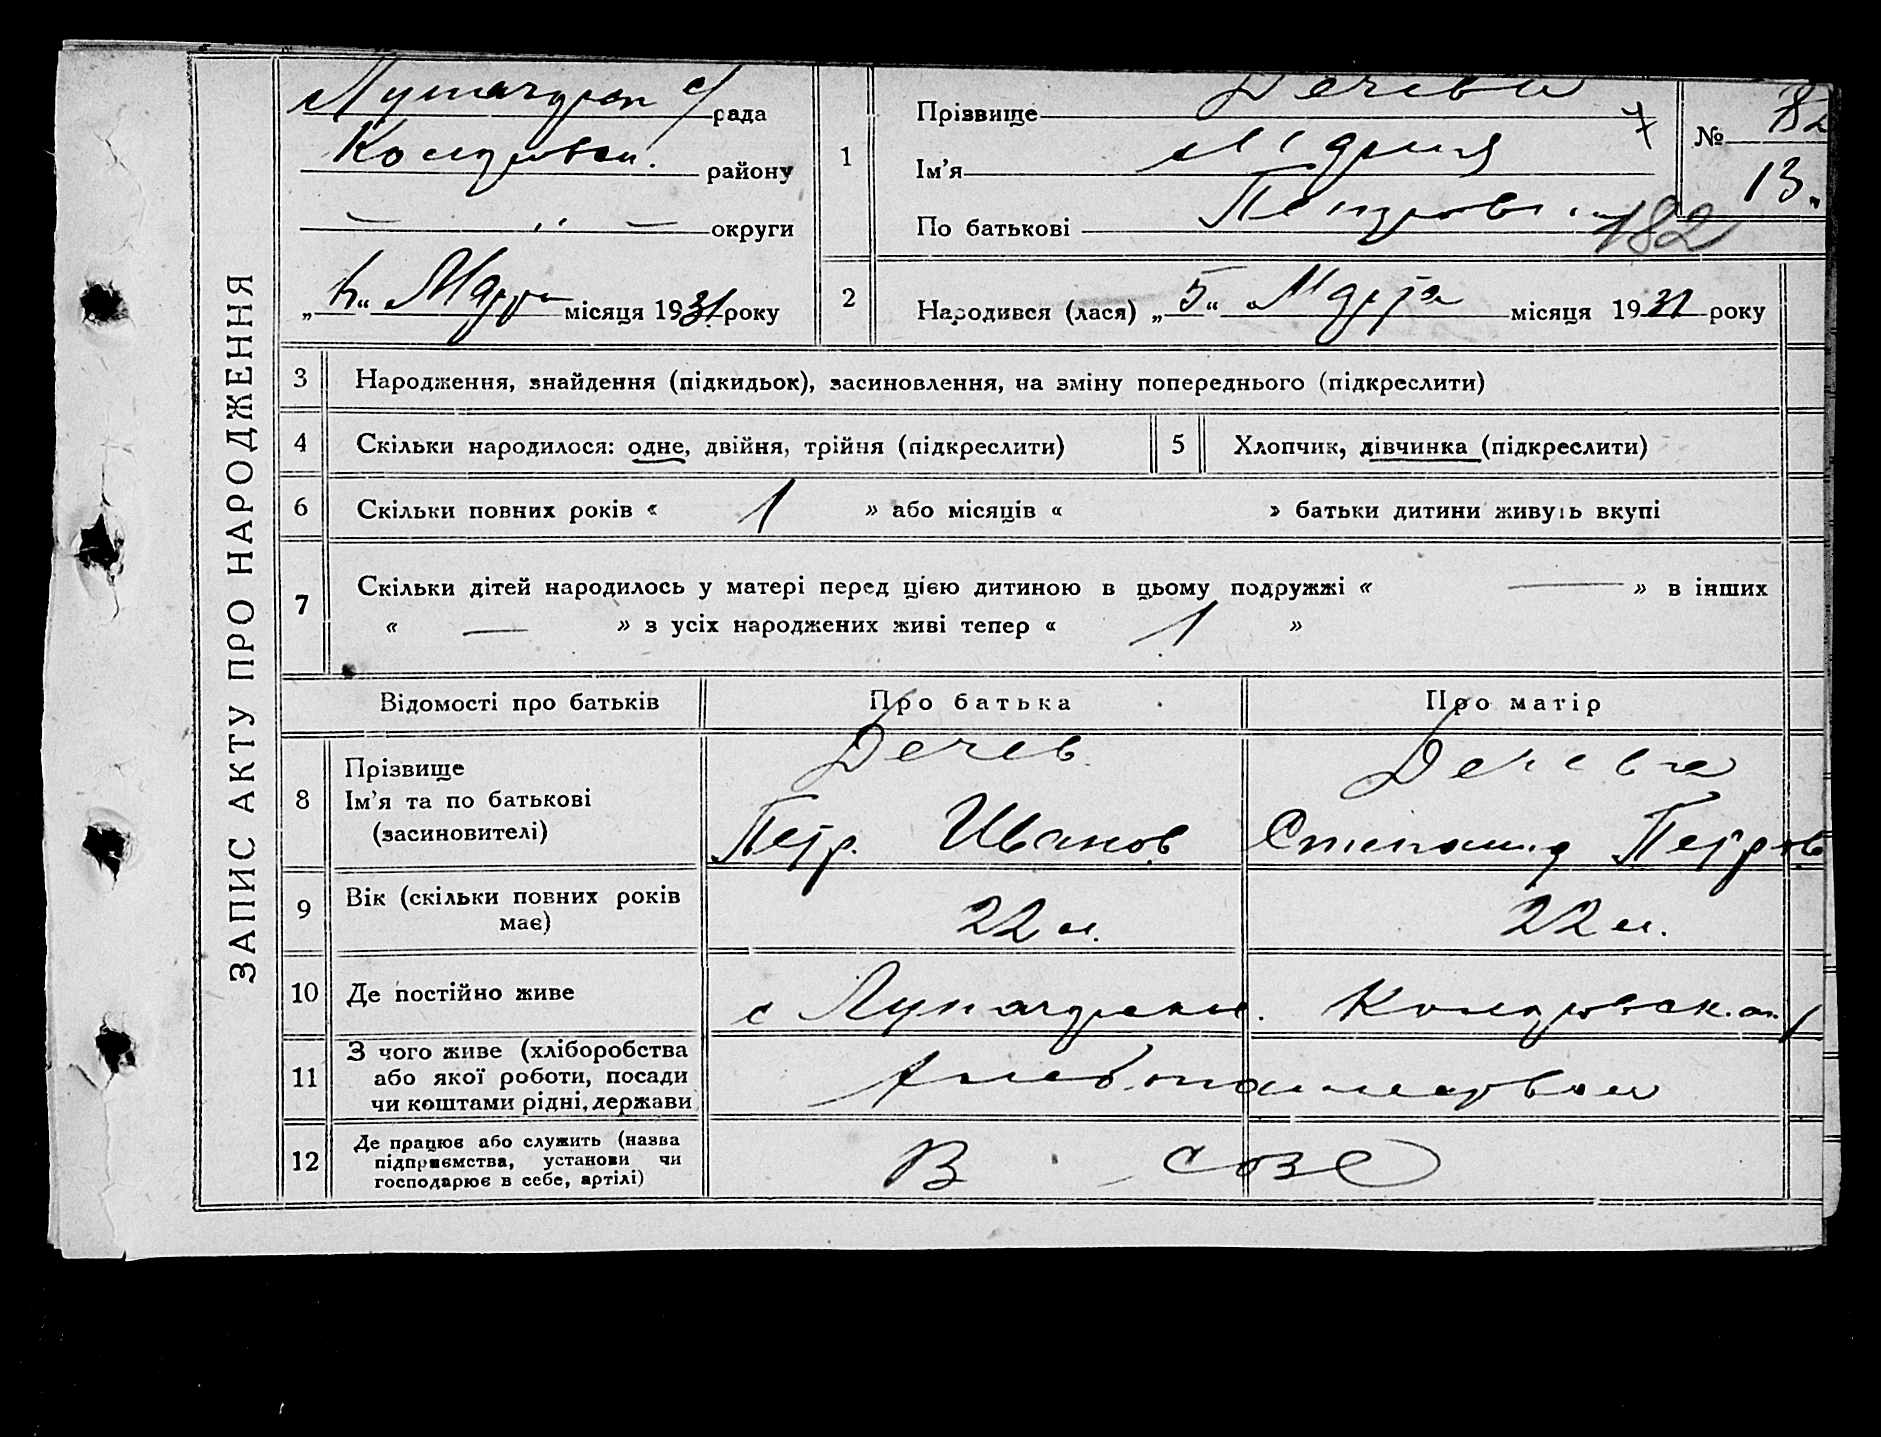 ЗАПИС АКТУ ПРО НАРОДЖЕННЯ
рада
району
округи
місяця 1931 року
1
Прізвище Дечева
Ім’я Мария
По батькові
№
13
182
2
Народився (лася) „5“ Марта місяця 1931 року
3 Народження, знайдення (підкидьок), засиновлення, на зміну попереднього (підкреслити)
4 Скільки народилося: одне, двійня, трійня (підкреслити)
5 Хлопчик, дівчинка (підкреслити)
6 Скільки повних років « 1 » або місяців « » батьки дитини живуть вкупі
7 Скільки дітей народилось у матері перед цією дитиною в цьому подружжі « — » в інших
« — » з усіх народжених живі тепер « 1 »
Відомості про батьків
Про батька
Про матір
8 Прізвище
Ім’я та по батькові
(засиновителі)
Дечев
Петр. Иванов
Дечева
Петров
9 Вік (скільки повних років
має)
22 л.
22 л.
10 Де постійно живе
с
11 З чого живе (хліборобства
або якої роботи, посади
чи коштами рідні, держави
12 Де працює або служить (назва
підприємства, установи чи
господарює в себе, артілі)
В СОЗе